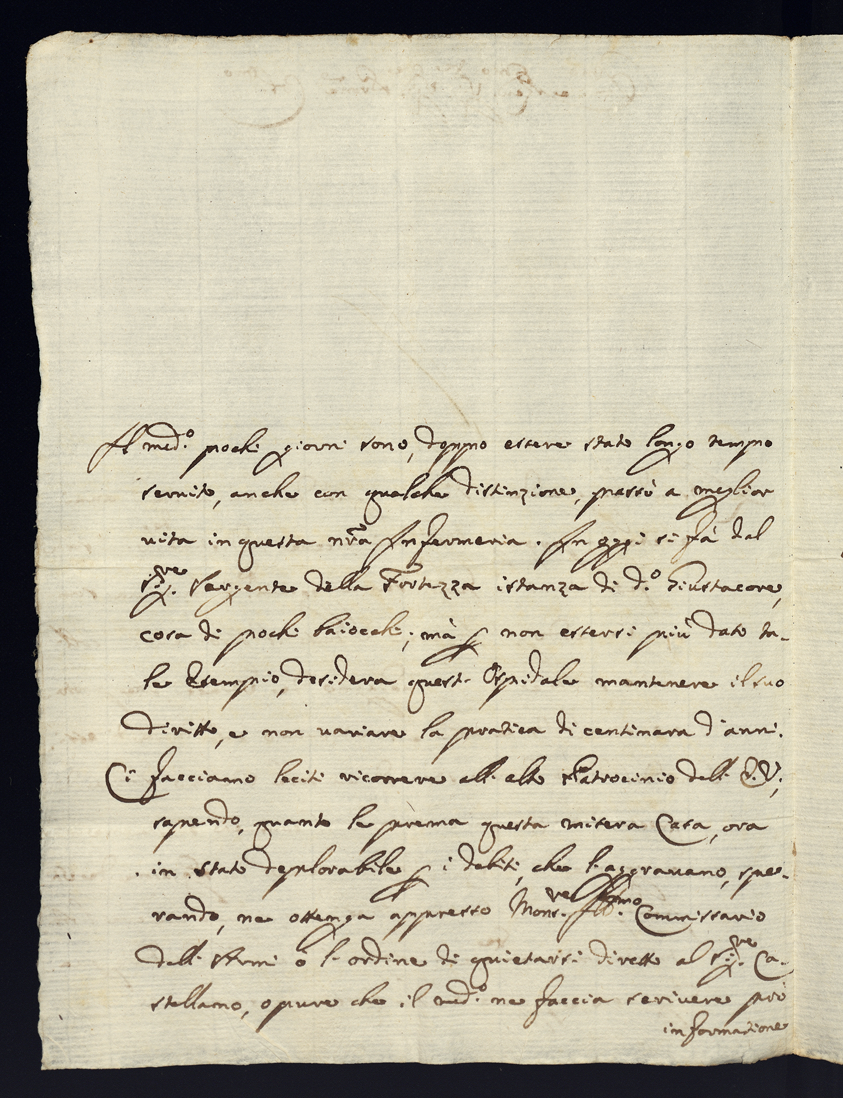 Il med.º pochi giorni sono, doppo essere stato longo tempo
servito, anche con qualche distinzione, passò a meglior
vita in questa nr̃a Infermeria. In oggi si fà dal
Sig.re Sergente della Fortezza istanza di d.º Giustacore,
cosa di pochi baiocchi; mà p non essersi più dato ta-
le Esempio, desidera quest. Ospidale mantenere il suo
diritto, e non variare la pratica di centinara d'anni.
Ci facciamo leciti ricorrere all. alto Patrocinio dell. E.V.,
sapendo, quanto le prema questa misera Casa, ora
in stato deplorabile p i debiti, che l'aggravano, spe-
rando, ne ottenga appresso Mons.re Ill.mo Commissario
dell. Armi ò l. ordine di quietarsi diretto al Sig.re Ca-
stellano, opure che il med.º ne faccia scrivere più
informazione